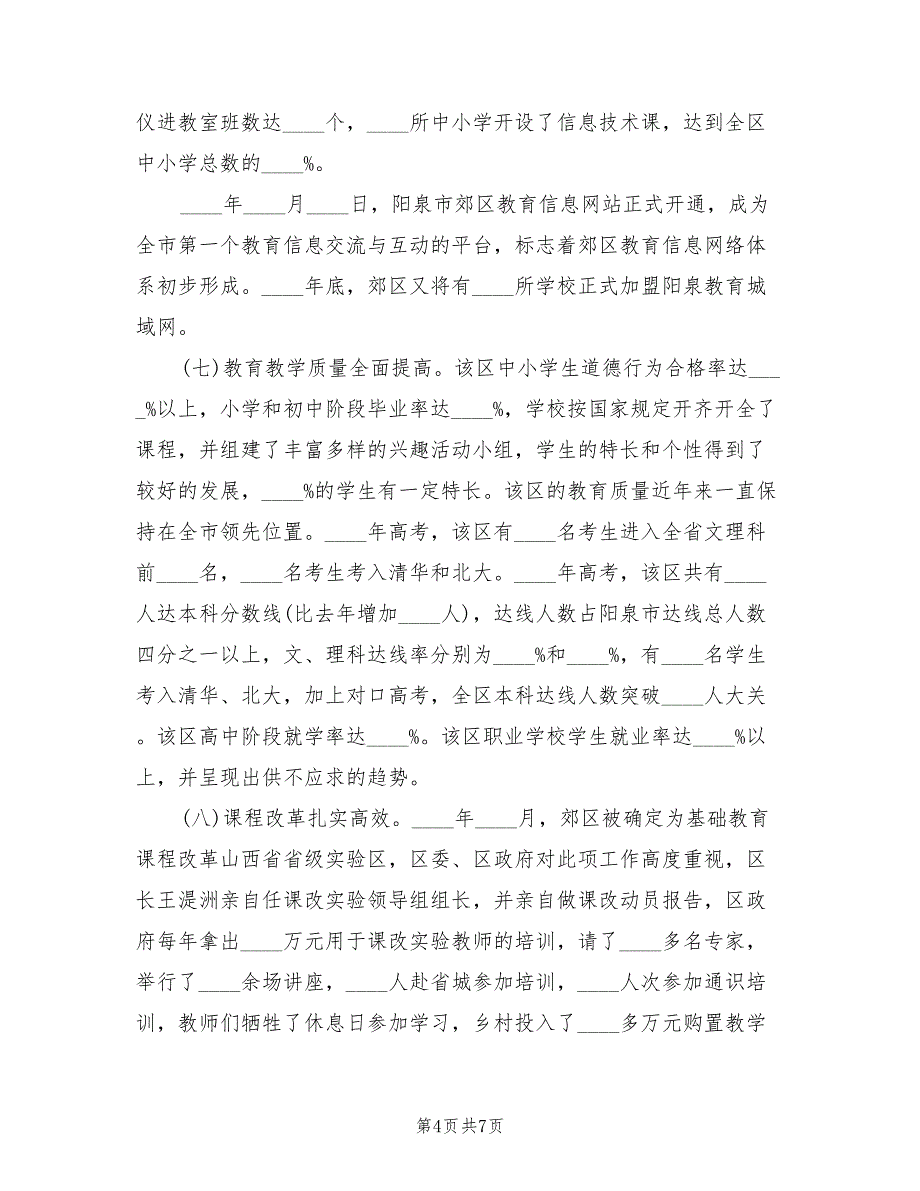 仪进教室班数达____个，____所中小学开设了信息技术课，达到全区
中小学总数的____%。
____年____月____日，阳泉市郊区教育信息网站正式开通，成为
全市第一个教育信息交流与互动的平台，标志着郊区教育信息网络体
系初步形成。____年底，郊区又将有____所学校正式加盟阳泉教育城
域网。
(七)教育教学质量全面提高。该区中小学生道德行为合格率达___
_%以上，小学和初中阶段毕业率达____%，学校按国家规定开齐开全了
课程，并组建了丰富多样的兴趣活动小组，学生的特长和个性得到了
较好的发展，____%的学生有一定特长。该区的教育质量近年来一直保
持在全市领先位置。____年高考，该区有____名考生进入全省文理科
前____名，____名考生考入清华和北大。____年高考，该区共有____
人达本科分数线(比去年增加____人)，达线人数占阳泉市达线总人数
四分之一以上，文、理科达线率分别为____%和____%，有____名学生
考入清华、北大，加上对口高考，全区本科达线人数突破____人大关
。该区高中阶段就学率达____%。该区职业学校学生就业率达____%以
上，并呈现出供不应求的趋势。
(八)课程改革扎实高效。____年____月，郊区被确定为基础教育
课程改革山西省省级实验区，区委、区政府对此项工作高度重视，区
长王湜洲亲自任课改实验领导组组长，并亲自做课改动员报告，区政
府每年拿出____万元用于课改实验教师的培训，请了____多名专家，
举行了____余场讲座，____人赴省城参加培训，____人次参加通识培
训，教师们牺牲了休息日参加学习，乡村投入了____多万元购置教学
第4页共7页